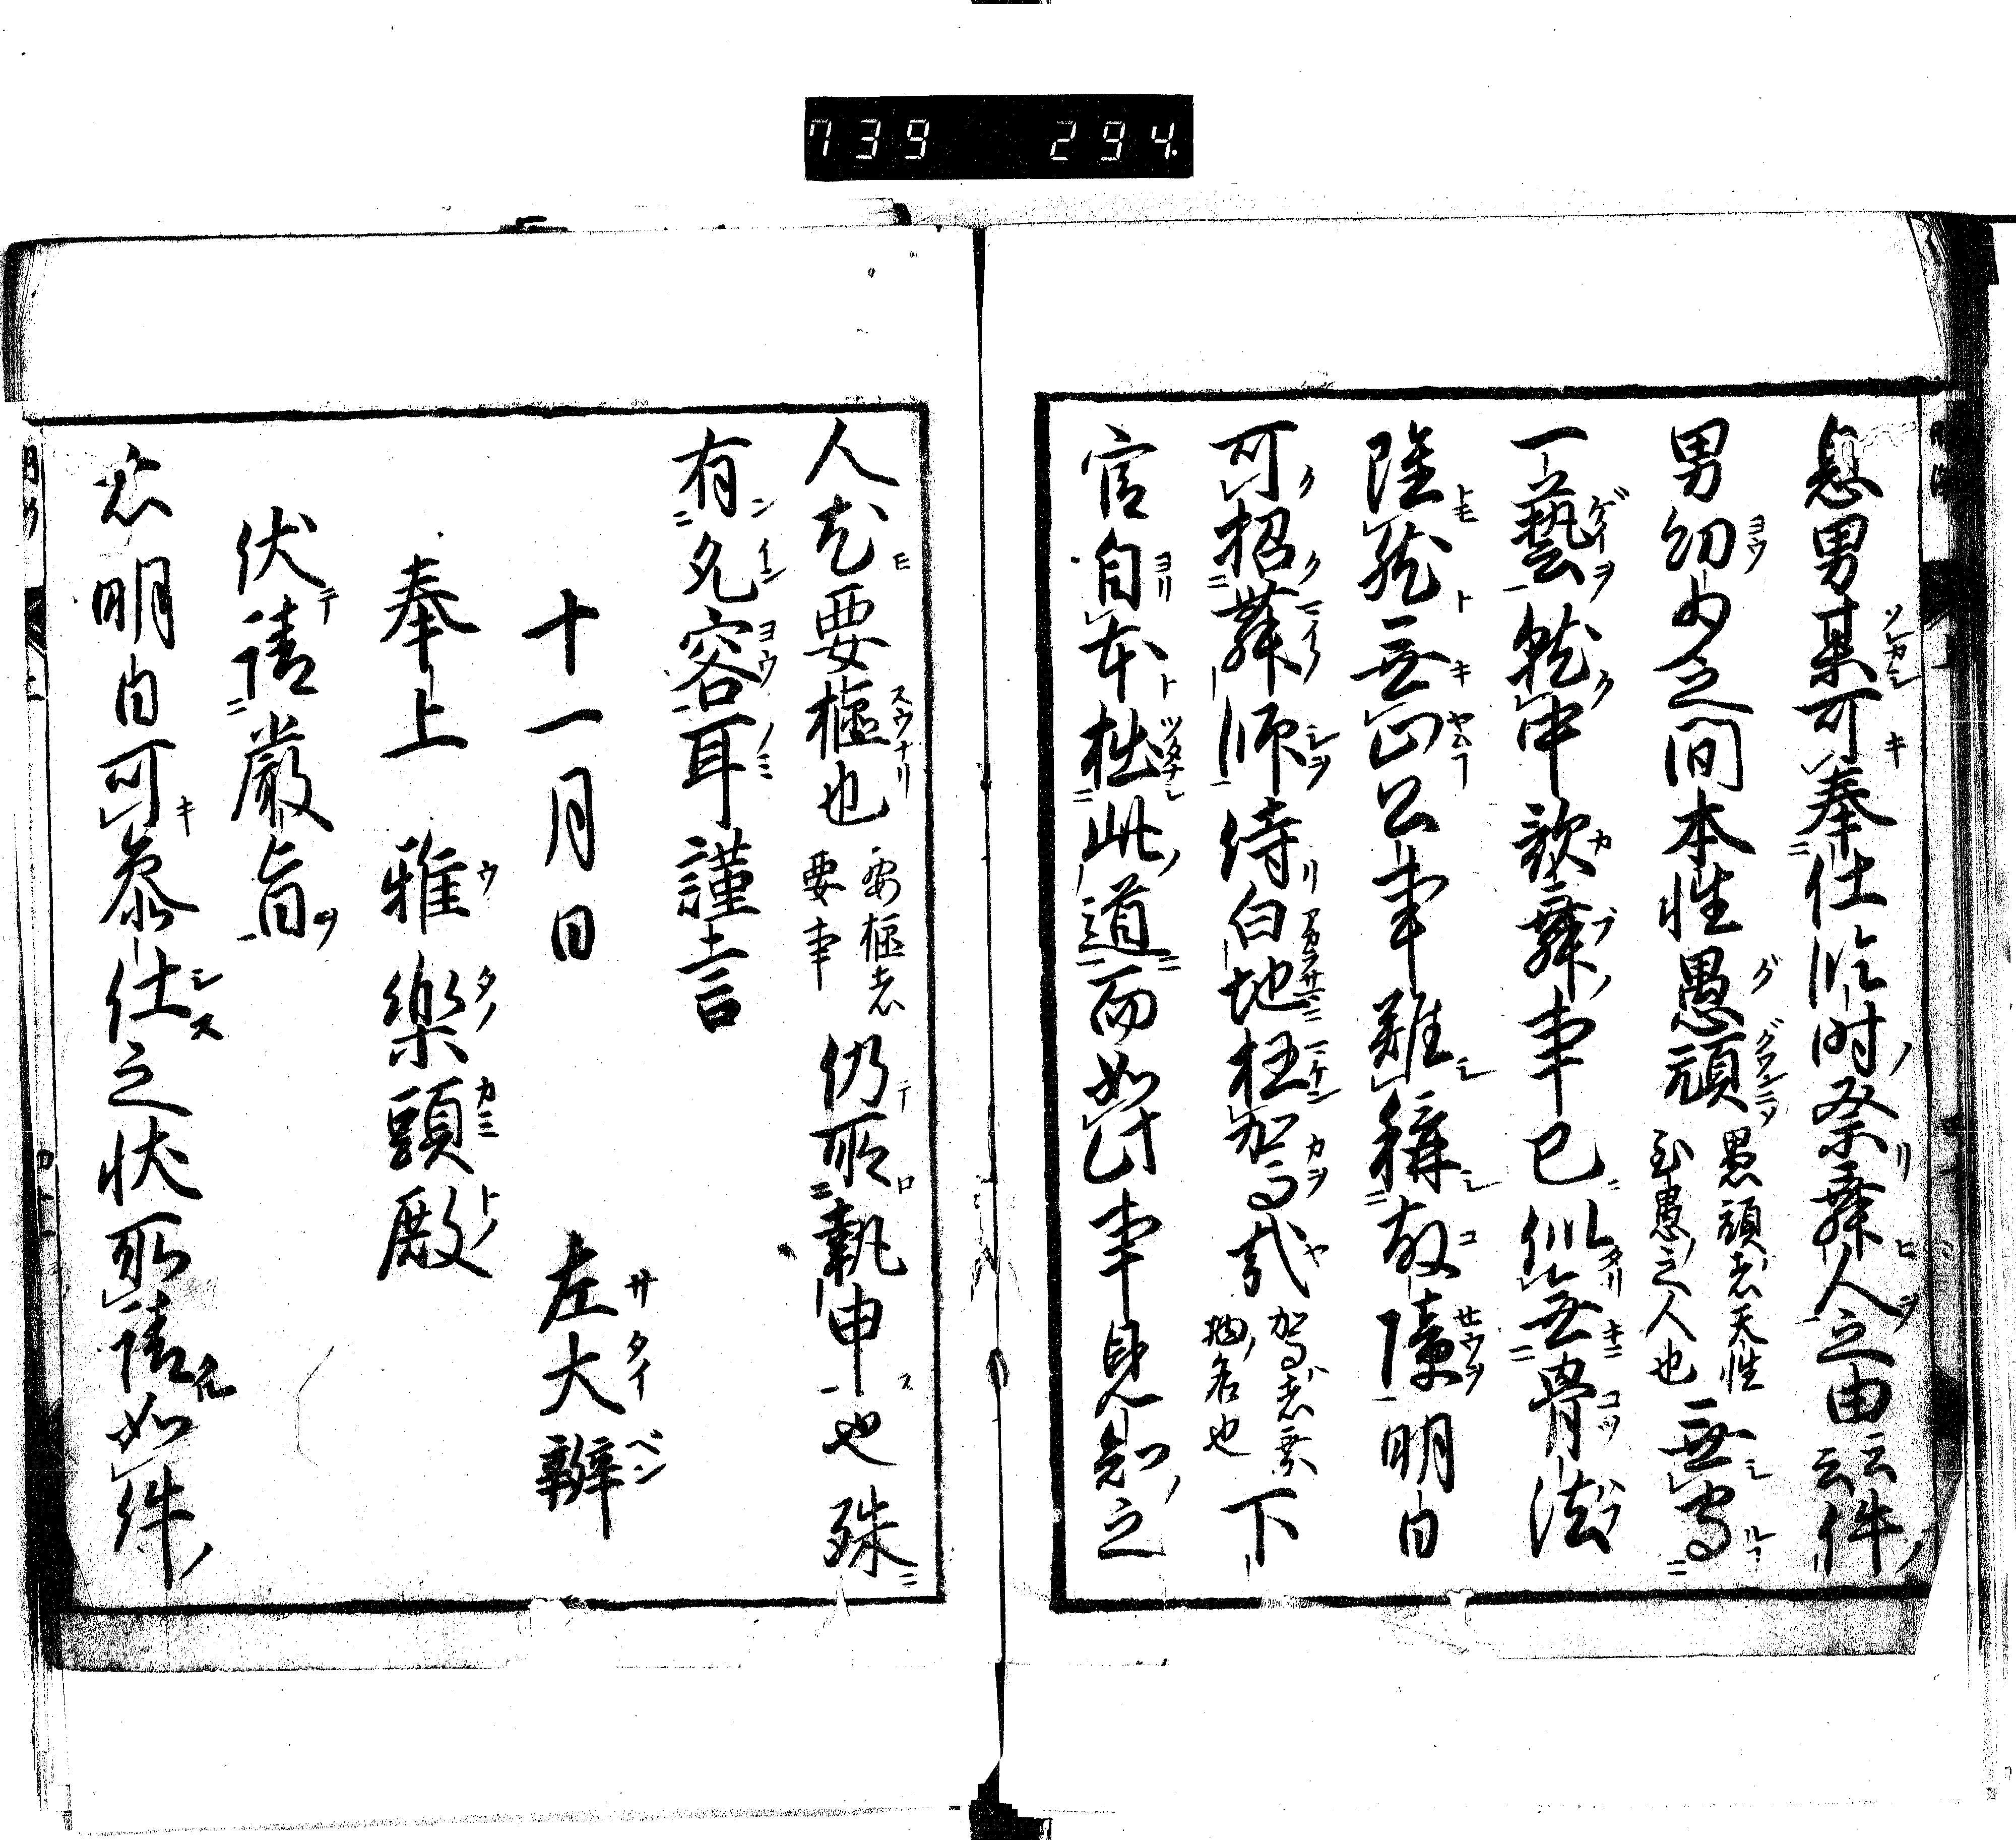 739 294
息男某可奉仕臨時祭舞人之由云云件
男幼少之間本性愚頑愚頑者天性至愚之人也無寫
一藝就中歌舞事已似無骨法
雖然無止公事難稱故障明日
可招舞師侍白地枉駕哉駕者乗物名也下
官自本拙此道而如此事見知之
人尤要樞也要樞者要事仍所執申也殊
有允容耳謹言
十一月日 左大辨
奉上 雅樂頭殿
伏請嚴旨
忝明日可参仕之状所請如件